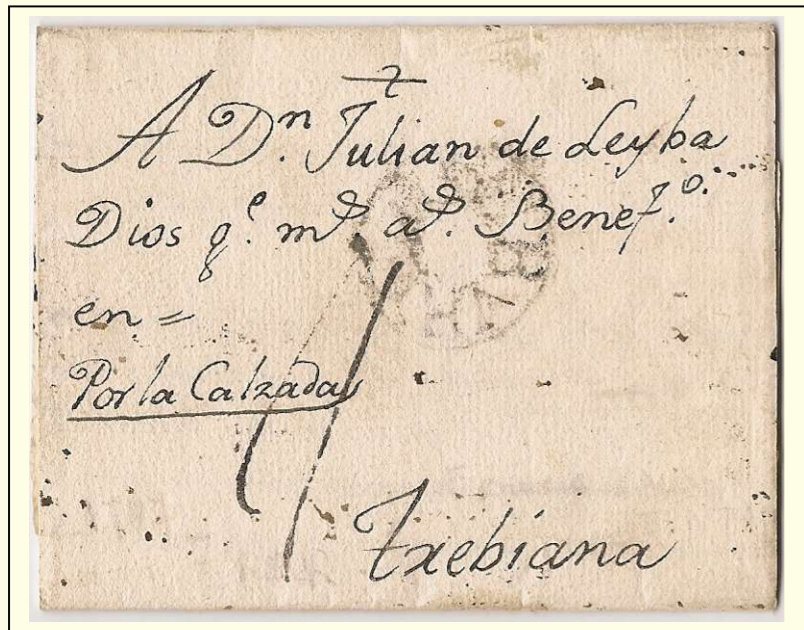 A D.n Julian de Leyba
Dios q.e m.s a.s Benef.o
en =
Por la Calzada
Trebiana